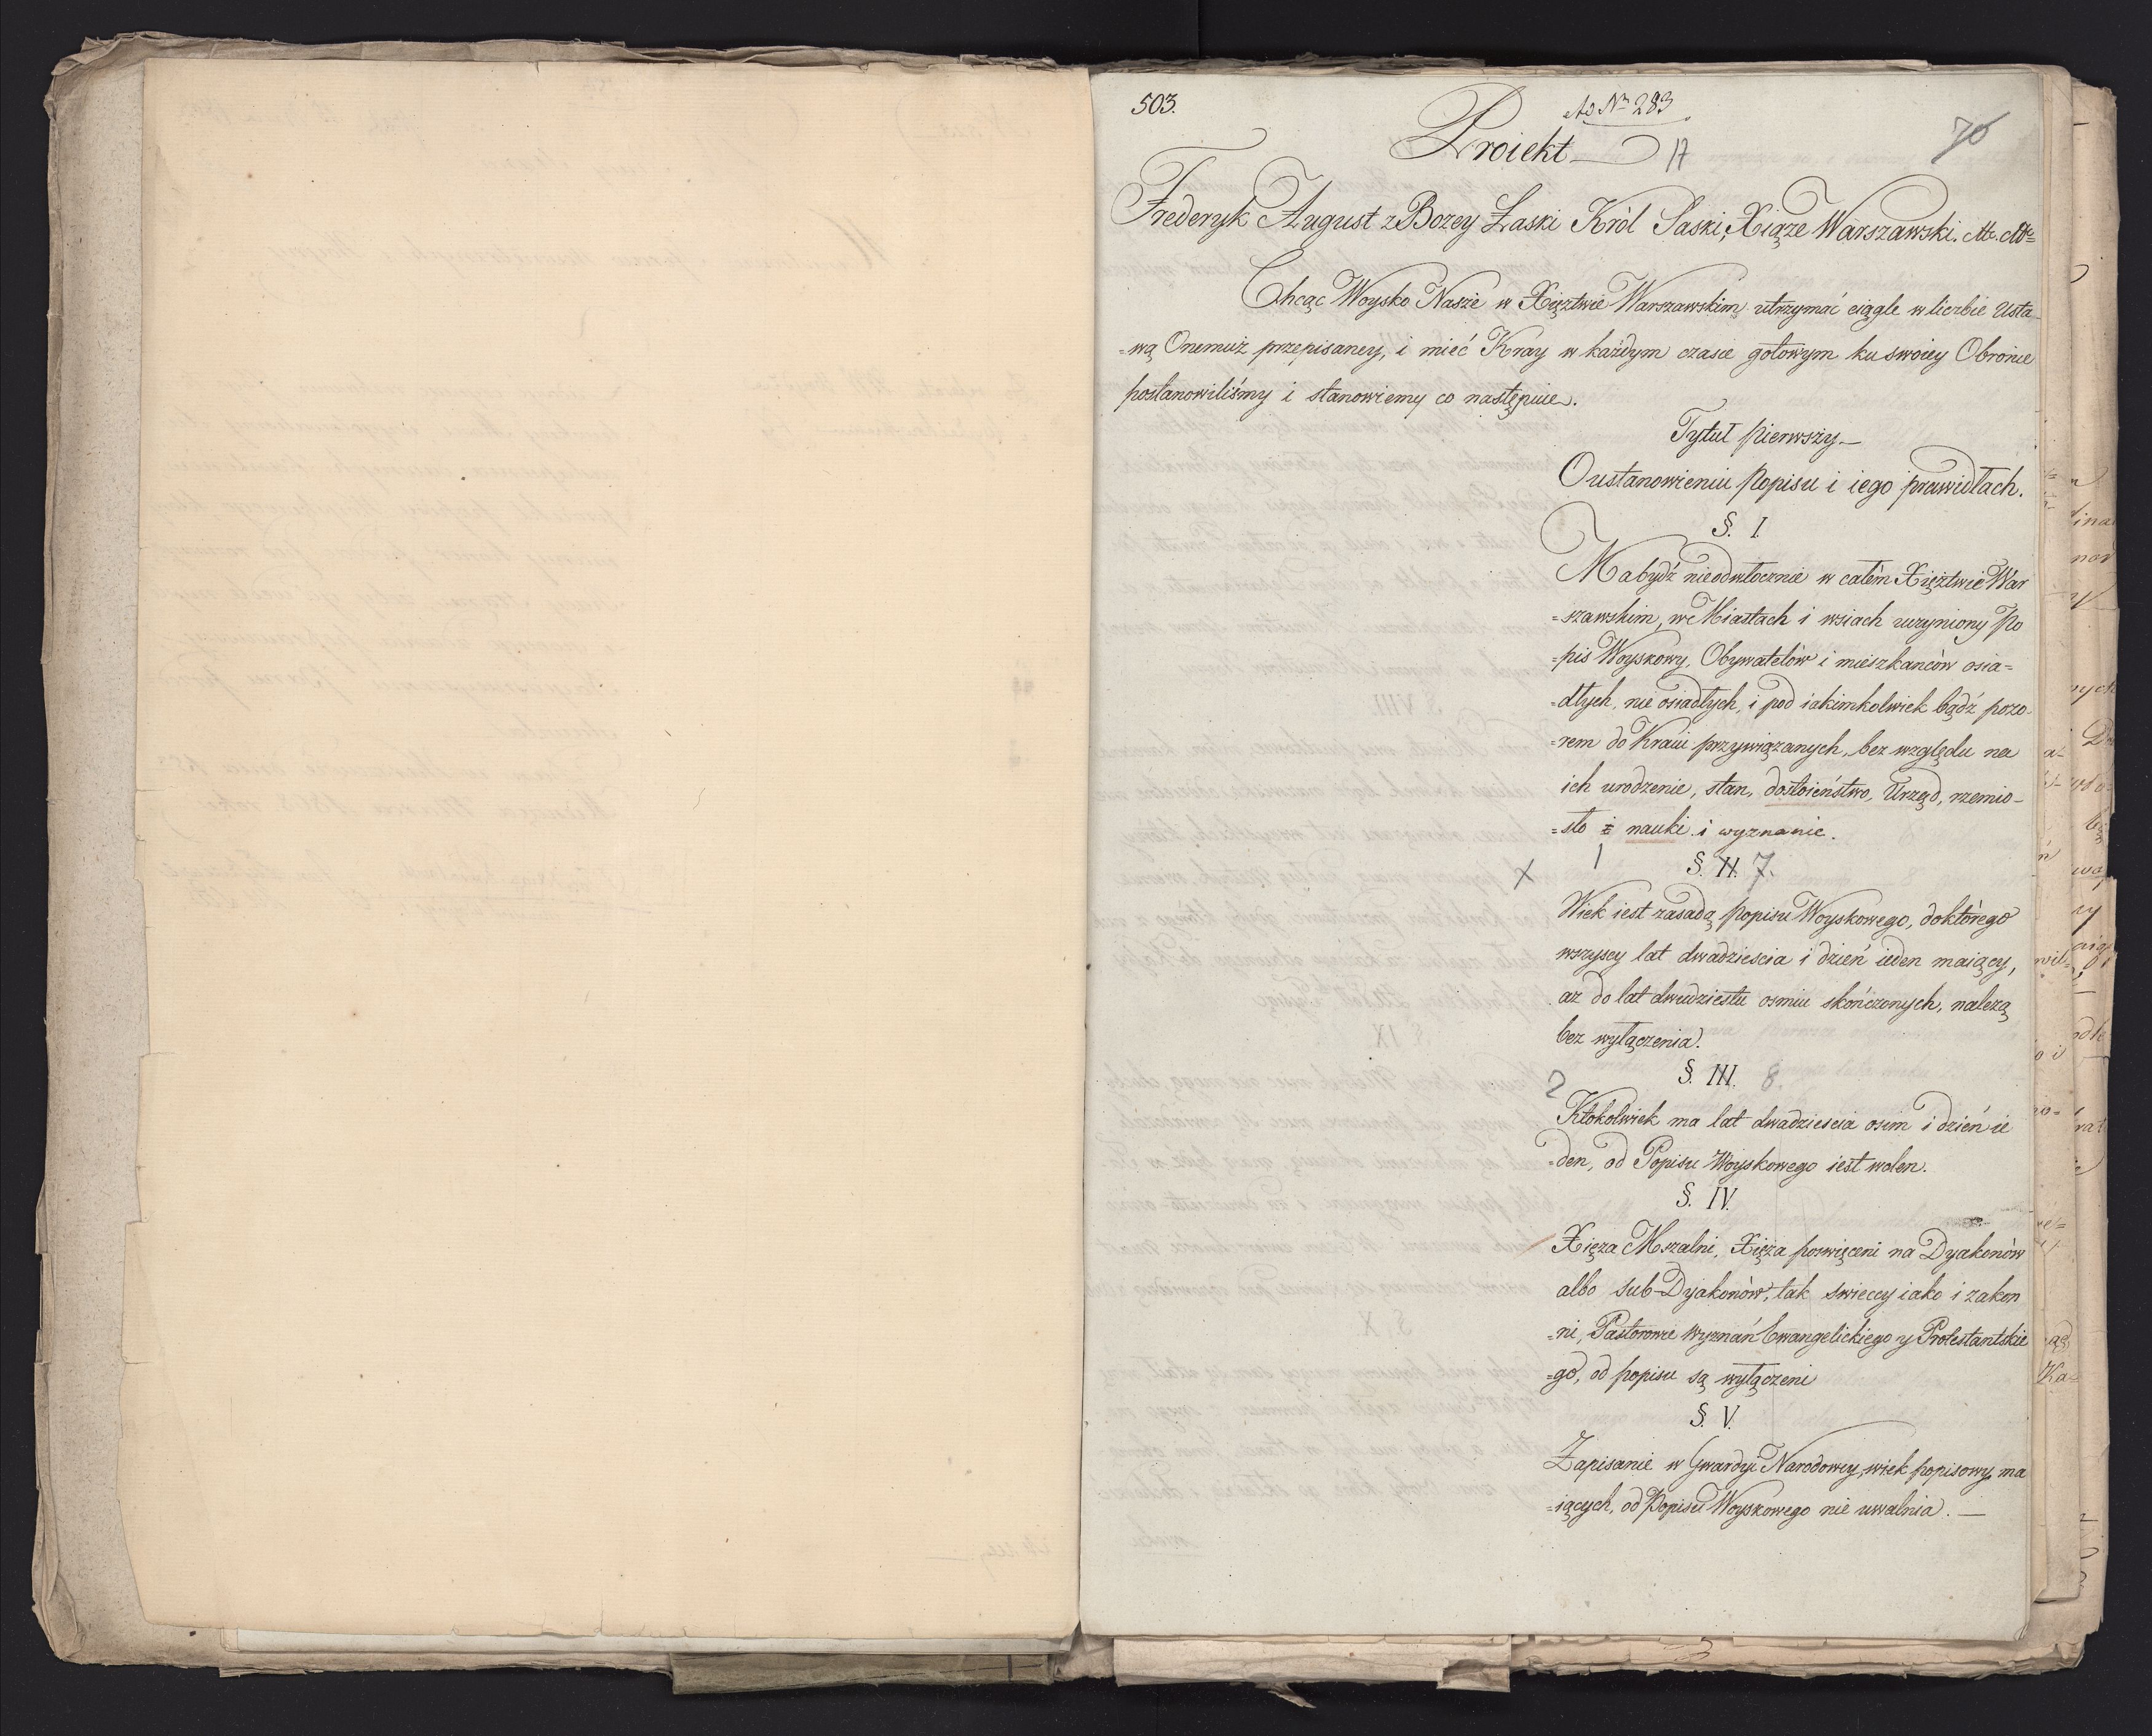 503.
Ad Nr 283
Proiekt 17
70
Frederyk August z Bozey Łaski Król Saski, Xiąze Warszawski. &c. &c=
Chcąc Woysko Nasze w Xięztwie Warszawskim utrzymać ciągle w liczbie Usta
=wą Onemuż przepisaney, i mieć Kray w każdym czasie gotowym ku swoiey Obronie
postanowiliśmy i stanowiemy co następuie.
Tytuł pierwszy_
O ustanowieniu popisu i iego prawidłach.
§. I.
Ma bydź nieodwłocznie w całém Xięztwie War
=szawskim, w Miastach i wsiach uczyniony Po
=pis Woyskowy, Obywatelów i mieszkanców osia=
=dłych, nie osiadłych, i pod iakimkolwiek bądź pozo-
=rem do Kraiu przywiązanych, bez względu na
ich urodzenie, stan, dostoieństwo, Urząd, rzemio-
=sło i nauki i wyznanie.
x 1 §. II. 7.
Wiek iest zasadą popisu Woyskowego, do którego
wszyscy lat dwadziescia i dzień ieden maiący,
az do lat dwudziestu osmiu skończonych, nalezą
bez wyłączenia.
2 §. III. 8.
Ktokolwiek ma lat dwadziescia osim i dzień ie
=den, od Popisu Woyskowego iest wolen.
§. IV.
Xięza Mszalni, Xięża poswięceni na Dyakonów
albo Sub-Dyakonów, tak swieccy iako i zakon
=ni, Pastorowie Wyznań Ewangelickiego y Protestantskie
=go, od popisu są wyłączeni
§. V.
Zapisanie w Gwardyi Narodowey, wiek popisowy ma
=iących, od Popisu Woyskowego nie uwalnia. —